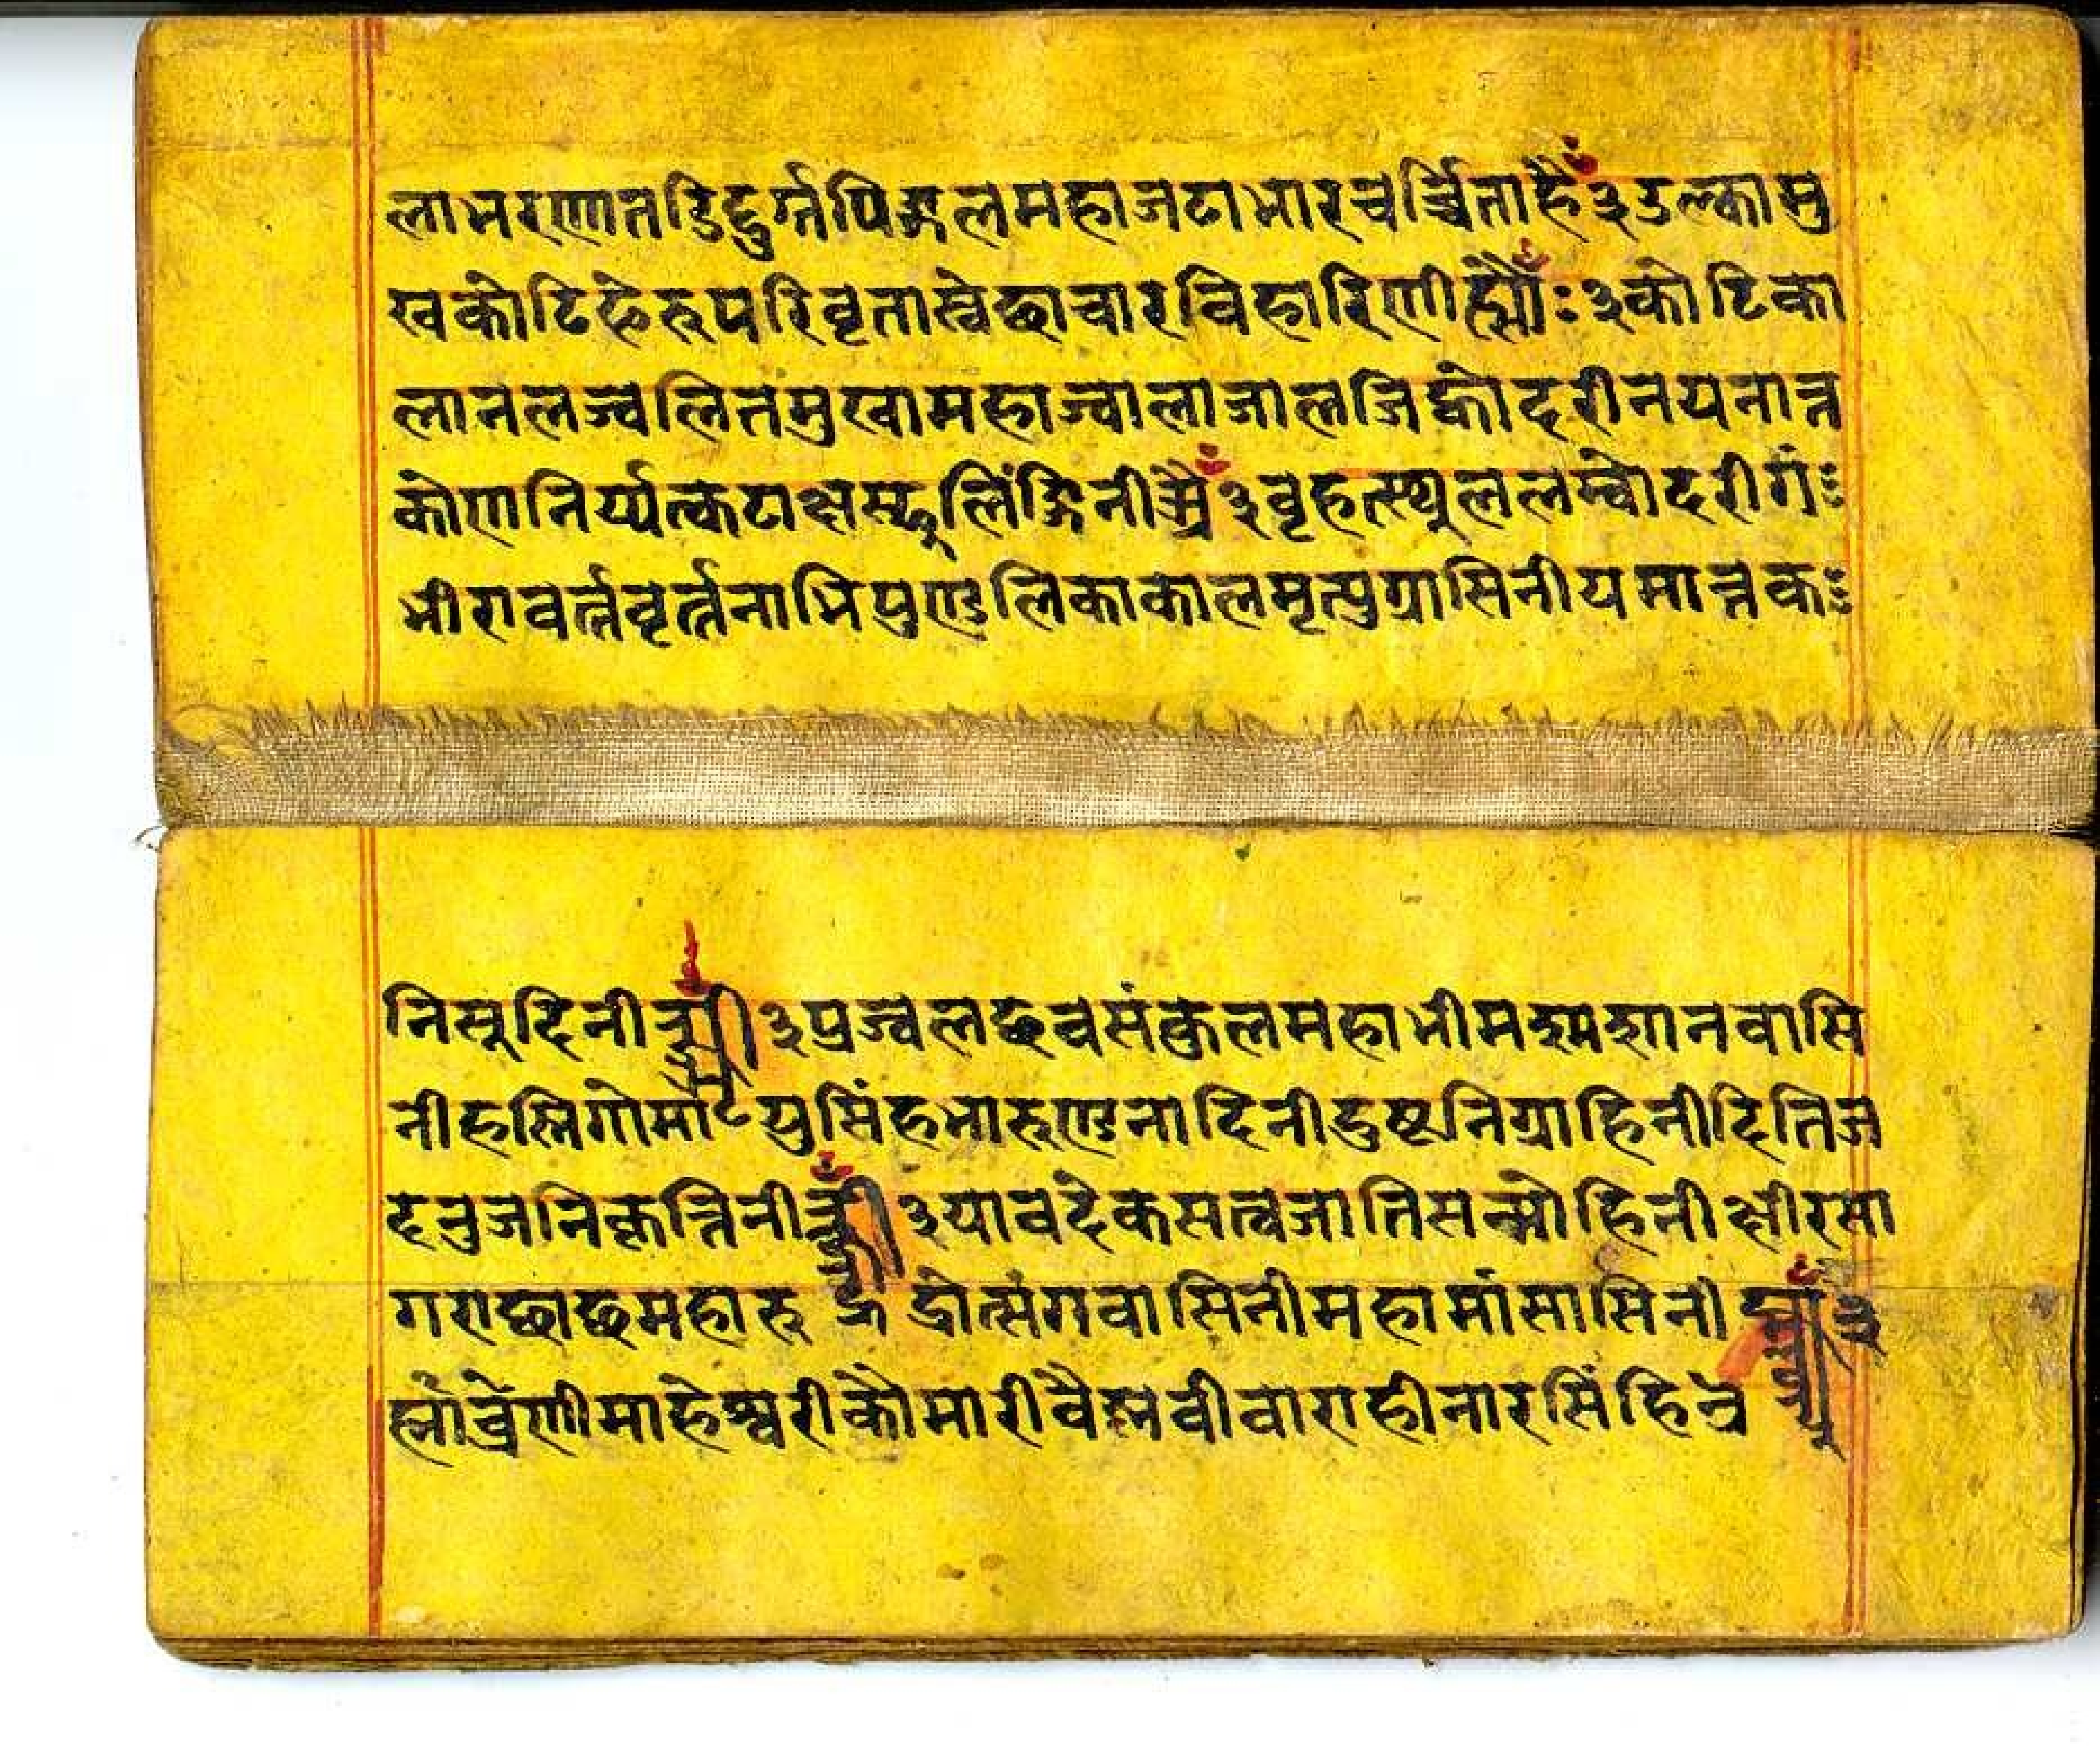 लाभरणातडिदुर्ग्नपिङ्गलमहाजटाभारचर्च्चिताहैँ३उल्कामु
खकोटिफेरुपरिवृतास्वेछाचारविहारिणीह्सौँः३कोटिका
लानलज्वलितमुखामहाज्वालाजालजिह्वोदरीनयनान्त
कोणनिर्य्यत्कटाक्षस्फुलिंङ्गिनी ३वृहत्स्थुललम्बोदरीगं
भीरावर्त्तवृर्त्तनाभिपुण्डलिकाकालमृत्युग्रासिनीयमान्तक
निसूदिनी ३प्रज्वलछवसंकुलमहाभीमश्मशानवासि
नीहस्तिगोमायुसिंहभारुण्डनादिनीदुष्टनिग्राहिनीदितिज
दनुजनिकृन्तिनी ३यावदेकसत्वजातिसन्मोहिनीक्षीरसा
गराछाछमहारु द्रोत्संगवासिनीमहामांसासिनी ३
माहेश्वरीकौमारीवैष्नवीवाराहीनारसिंहि